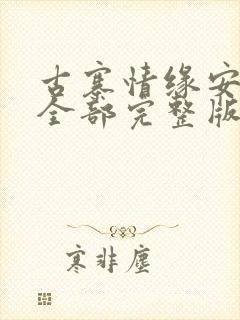 古寨情缘安
全部完整版
寒非尘